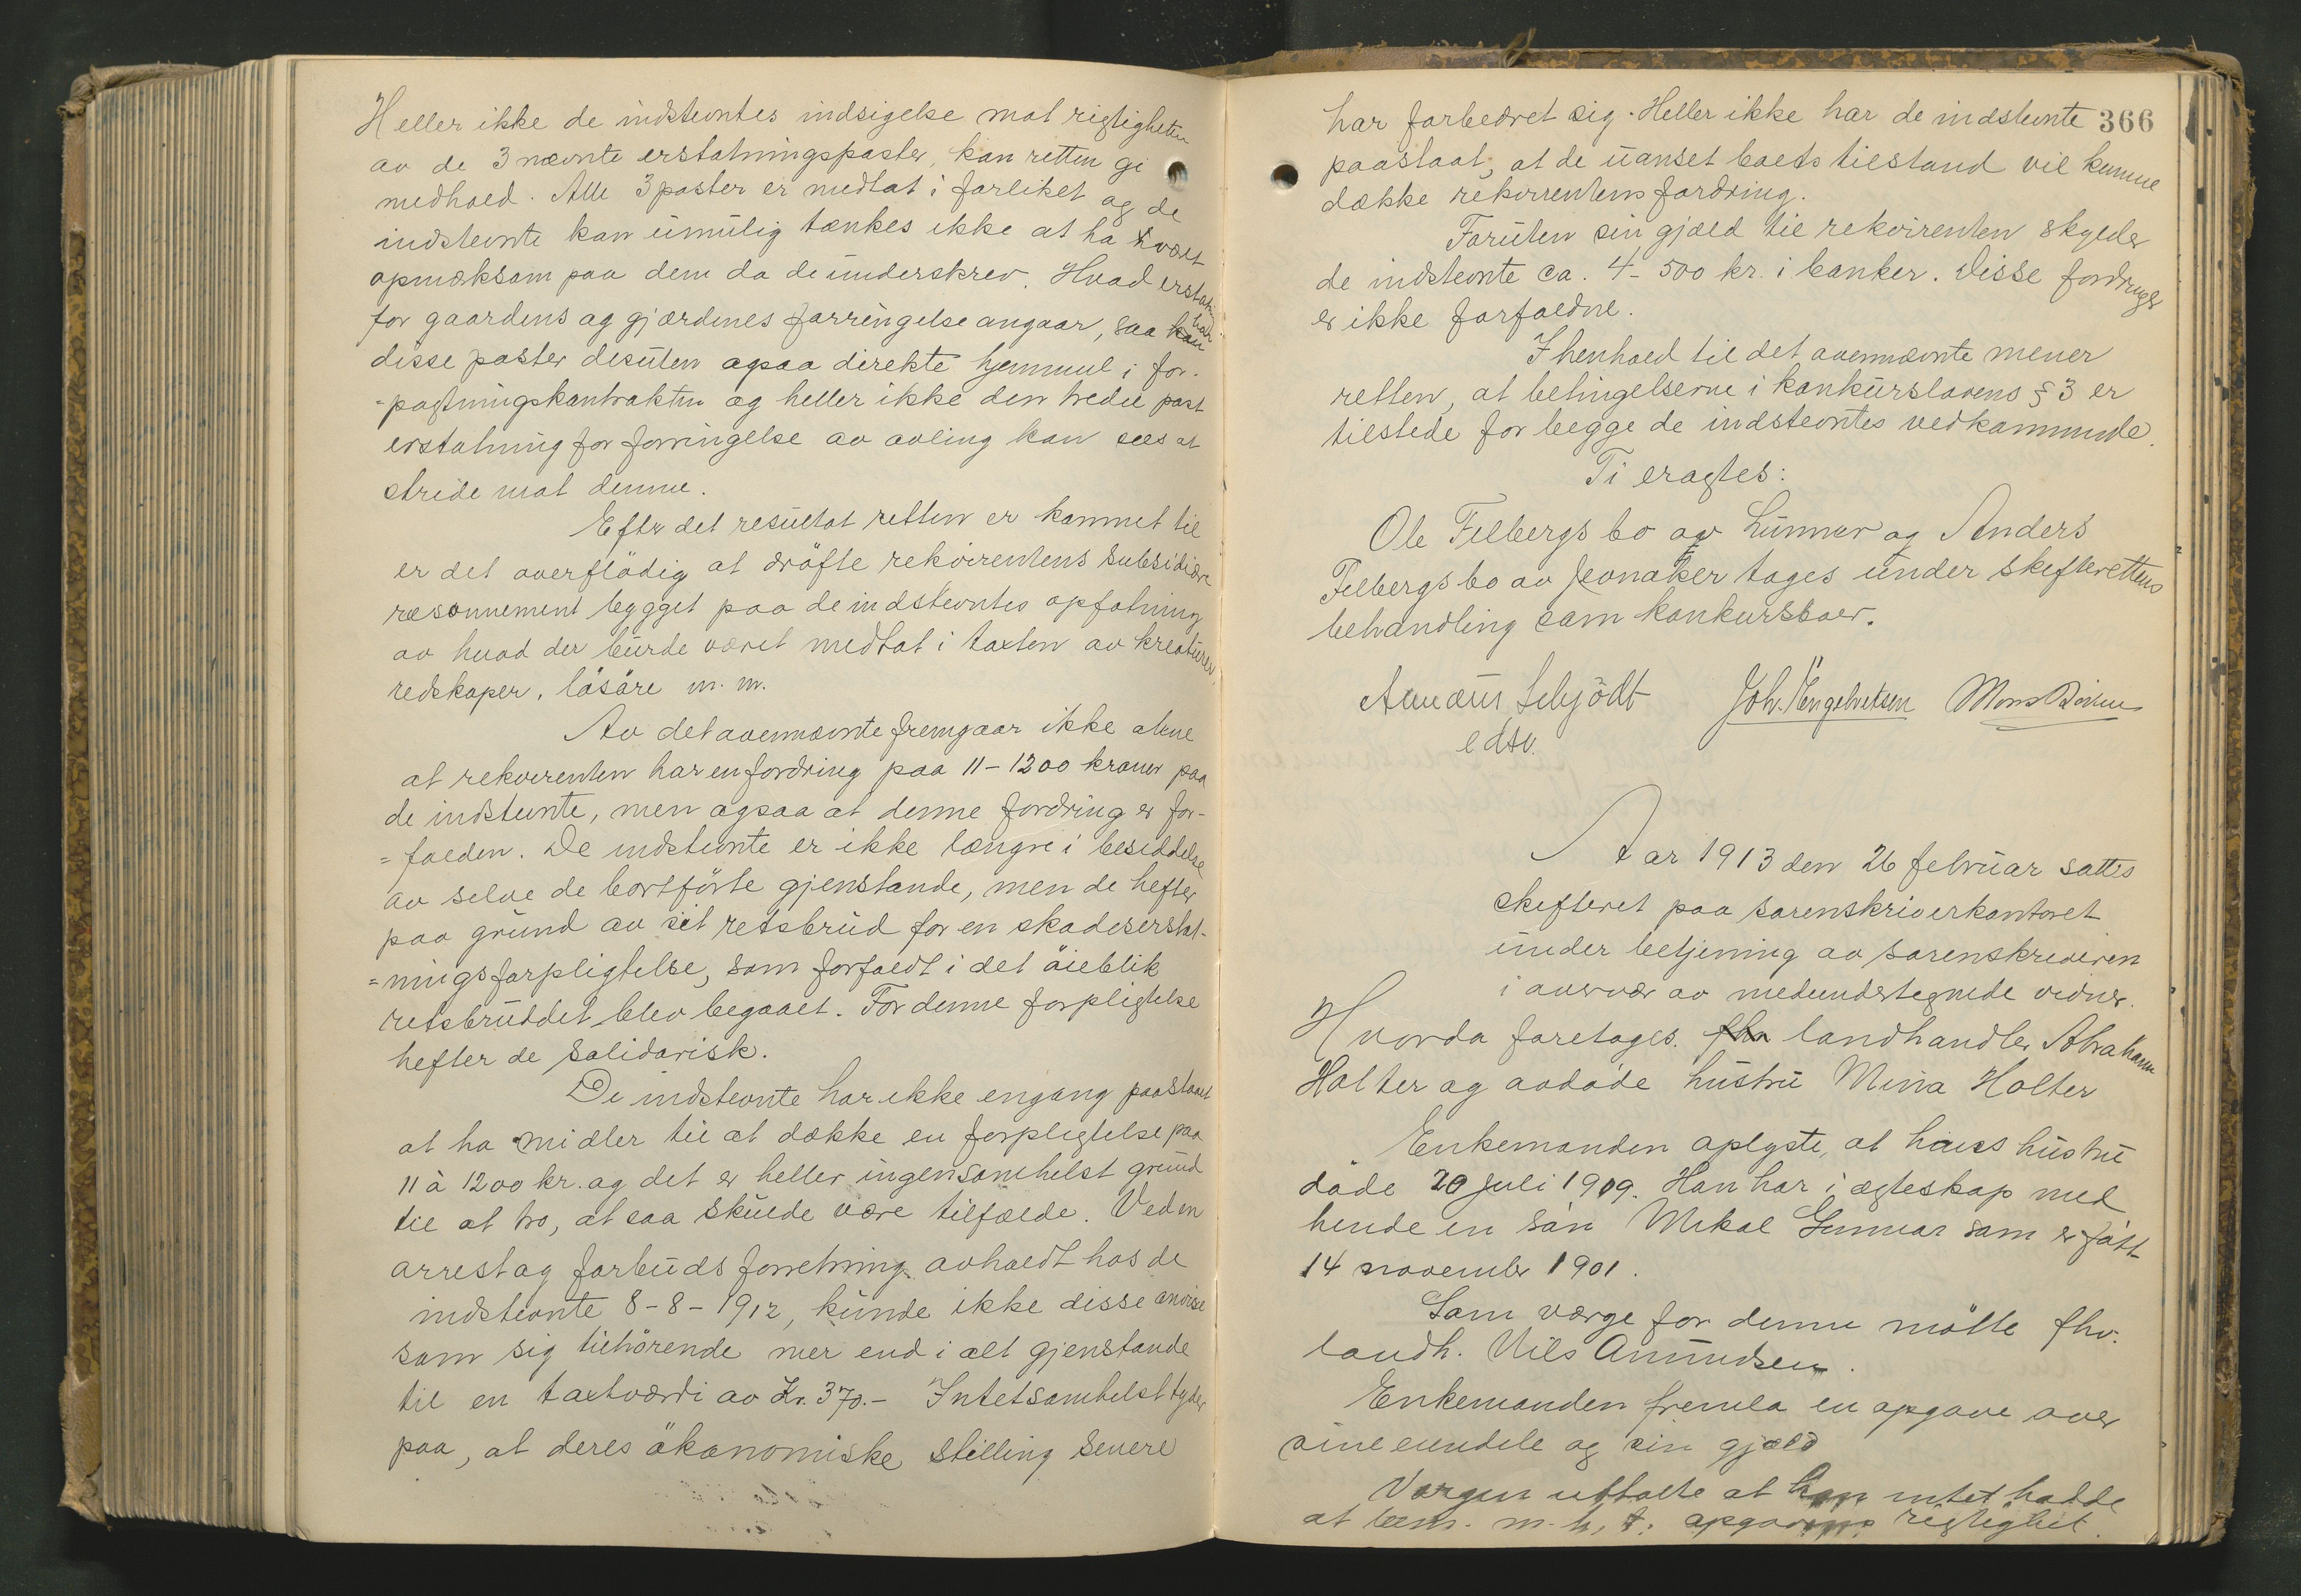 Heller ikke de indstevntes indsigelse mot rigtigheten
av de 3 nævnte erstatningsposter, kan retten gi
medhold. Alle 3 poster er medtat i forliket og de
indstevnte kan umulig tænkes ikke at ha været
opmerksom paa dem da de underskrev. Hvad erstatn.
for gaardens og gjærdenes forringelse angaar, saa har
disse poster desuten ogsaa direkte hjemmel i for-
=pagtningskontrakten og heller ikke den tredie post
erstatning for forringelse av avling kan sees at
stride mot denne.
Efter det resultat retten er kommet til
er det overflödig at dröfte rekvirentens subsidiære
ræsonnement bygget paa de indstevntes opfatning
av hvad der burde været medtat i taxten av kreaturer,
redskaper, lösöre m. m.
Av det ovennævnte fremgaar ikke alene
at rekvirenten har en fordring paa 11-1200 kroner paa
de indstevnte, men ogsaa at denne fordring er for-
=falden. De indstevnte er ikke længre i besiddelse
av selve de bortförte gjenstande, men de hefter
paa grund av sit retsbrud for en skadeserstat-
=ningsforpligtelse, som forfaldt i det öieblik
retsbruddet blev begaaet. For denne forpligtelse
hefter de solidarisk.
De indstevnte har ikke engang paastaaet
at ha midler til at dække en forpligtelse paa
11 à 1200 kr. og det er heller ingensomhelst grund
til at tro, at saa skulde være tilfælde. Ved en
arrest og forbudsforretning avholdt hos de
indstevnte 8-8-1912, kunde ikke disse anvise
som sig tilhörende mer end i alt gjenstande
til en taxtværdi av Kr. 370.- Intetsomhelst tyder
paa, at deres ökonomiske stilling senere
366
har forbedret sig. Heller ikke har de indstevnte
paastaat, at de uanset boets tilstand vil kunne
dække rekvirentens fordring.
Foruten sin gjæld til rekvirenten skylder
de indstevnte ca. 4-500 kr. i banker. Disse fordringer
er ikke forfaldne.
I henhold til det ovennævnte mener
retten, at betingelserne i konkurslovens § 3 er
tilstede for begge de indstevntes vedkommende.
Ti eragtes:
Ole Filbergs bo av Lunner og Anders
Filbergs bo av Jevnaker tages under skifterettens
behandling som konkursboer.
Schjödt Joh. Engebretsen Mons
edsv.
Aar 1913 den 26 februar sattes
skifteret paa sorenskriverkontoret
under betjening av sorenskriveren
i overvær av medundertegnede vidner.
Hvorda foretages. fhv landhandler Abraham
Holter og avdöde hustru Mina Holter
Enkemanden oplyste, at hans hustru
döde 20 juli 1909. Han har i ægteskap med
hende en sön Mikal Gunnar som er född
14 november 1901.
Som værge for denne mötte fhv.
landh. Nils Amundsen.
Enkemanden fremla en opgave over
sine eiendele og sin gjæld
Værgen uttalte at han intet hadde
at bem. m. h. t. opgavens rigtighet.